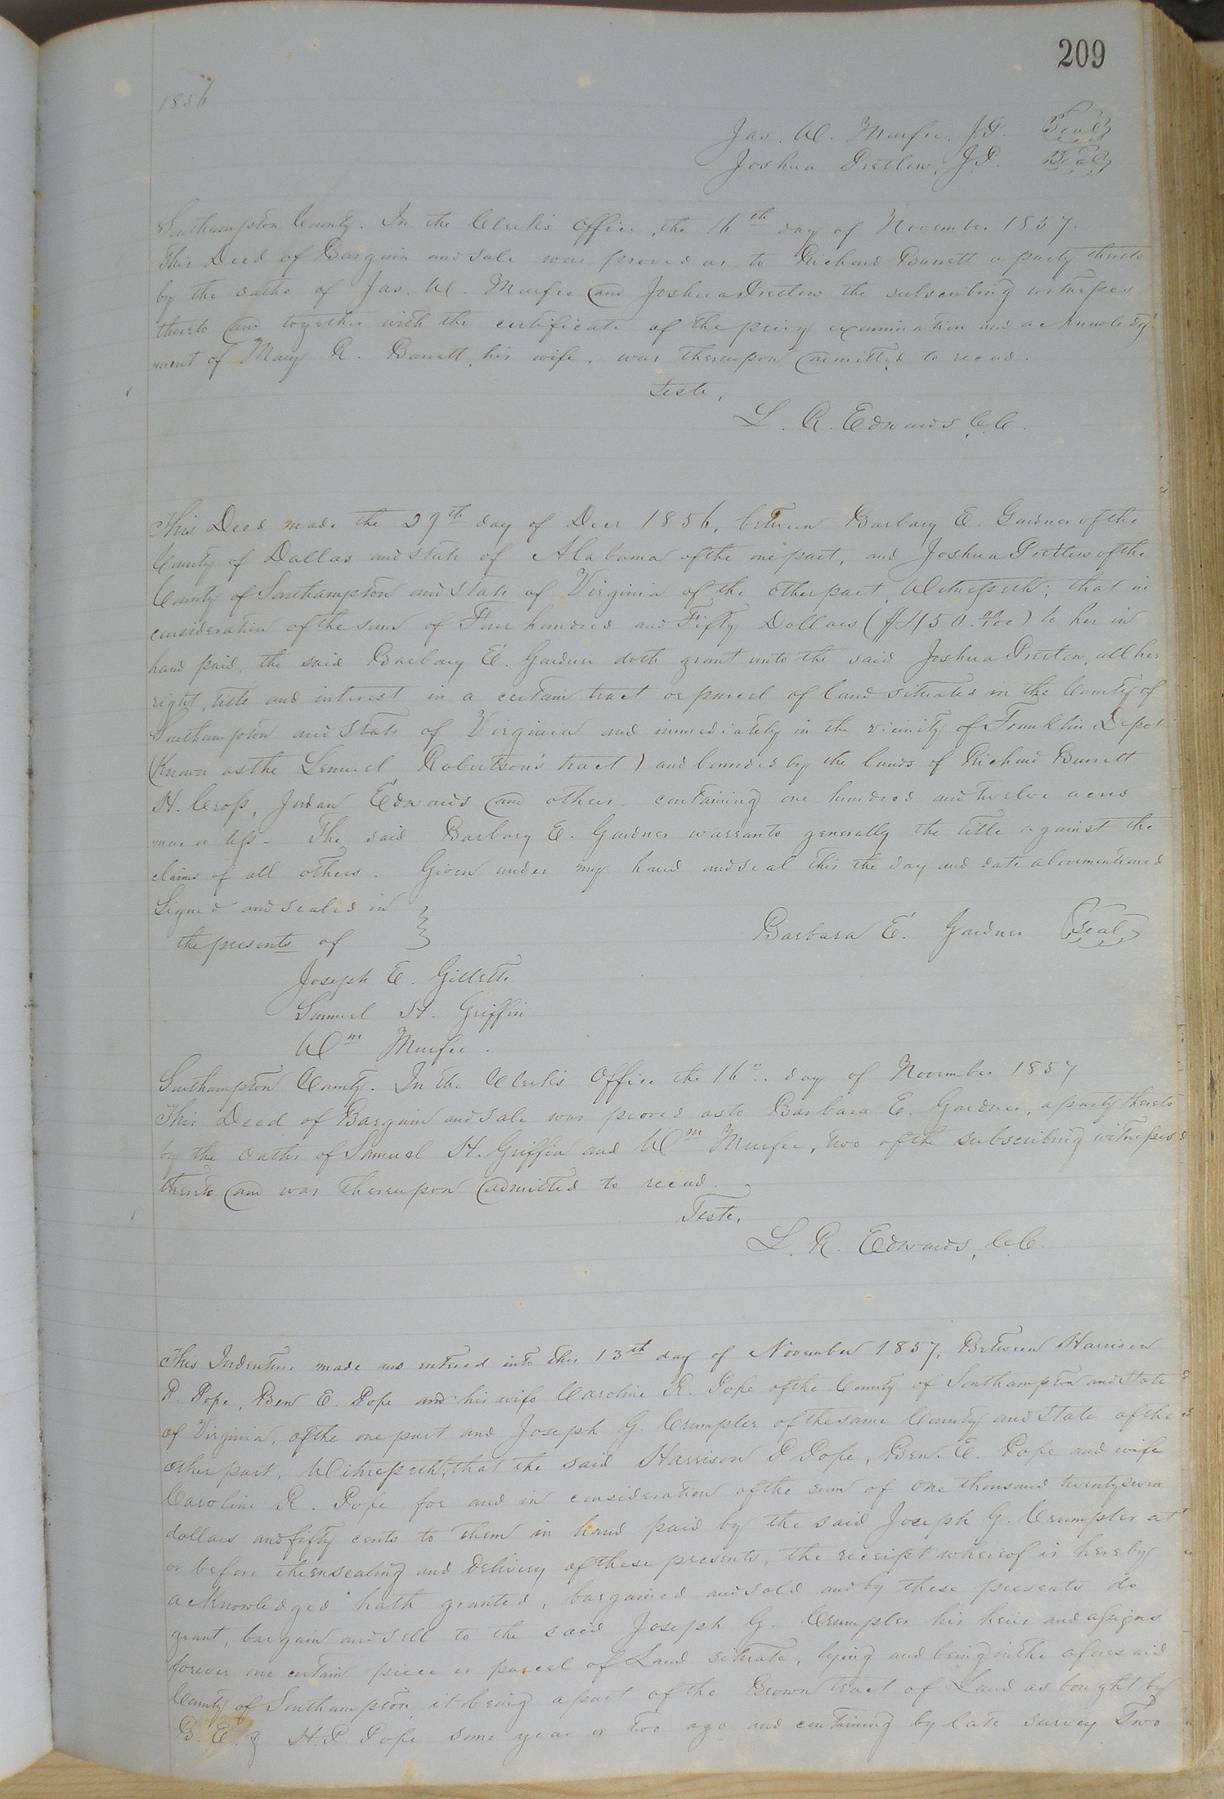 209
1857
Jas. W. Murfee, J.P. Seal
Joshua Pretlow, J.P. Seal
Southampton County. In the Clerk's Office, the 16th day of November 1857.
This Deed of Bargain and sale was proved as to Richard Barrett a party thereto
by the oaths of Jas. W. Murfee and Joshua Pretlow the subscribing witnesses
thereto and together with the certificate of the privy examination and acknowledg-
ment of Mary R. Barrett his wife, was thereupon admitted to record.
Teste,
L. R. Edwards, C.C.
This Deed made the 29th day of Decr 1856, between Barbary E. Gardner of the
County of Dallas and state of Alabama of the one part, and Joshua Pretlow of the
County of Southampton and State of Virginia of the other part, Witnesseth; that in
consideration of the sum of Four hundred and Fifty Dollars ($450.00/100) to her in
hand paid, the said Barbary E. Gardner doth grant unto the said Joshua Pretlow, all her
right, title and interest in a certain tract or parcel of land situated in the County of
Southampton and State of Virginia and immediately in the vicinity of Franklin Depot
(Known as the Lemuel Robertson's tract) and bounded by the lands of Richard Barrett
H. Cross, Jordan Edwards and others containing one hundred and twelve acres
more or less - The said Barbary E. Gardner warrants generally the title against the
claims of all others. Given under my hand and seal this the day and date abovementioned
Signed and sealed in
the presents of
Barbara E. Gardner Seal
Joseph E. Gillette
Samuel H. Griffin
Wm Murfee.
Southampton County. In the Clerk's Office the 16th day of November 1857
This Deed of Bargain and sale was proved as to Barbara E. Gardner, a party thereto
by the oaths of Samuel H. Griffin and Wm Murfee, two of the subscribing witnesses
thereto and was thereupon admitted to record.
Teste,
L. R. Edwards, C.C.
This Indenture made and entered into this 13th day of November 1857, Between Harrison
P. Pope, Ben E. Pope and his wife Caroline R. Pope of the County of Southampton and State
of Virginia, of the one part and Joseph G. Crumpler of the same County and State of the
other part, Witnesseth, that the said Harrison P Pope, Ben. E. Pope and wife
Caroline R. Pope for and in consideration of the sum of one thousand twenty seven
dollars and fifty cents to them in hand paid by the said Joseph G. Crumpler at
or before the ensealing and delivery of these presents, the receipt whereof is hereby
acknowledged hath granted, bargained and sold and by these presents do
grant, bargain and sell to the said Joseph G. Crumpler his heirs and assigns
forever one certain piece or parcel of Land situate, lying and being in the aforesaid
County of Southampton, it being a part of the Brown tract of Land as bought by
B. E. & H. P. Pope some year or two ago and containing by late survey Two